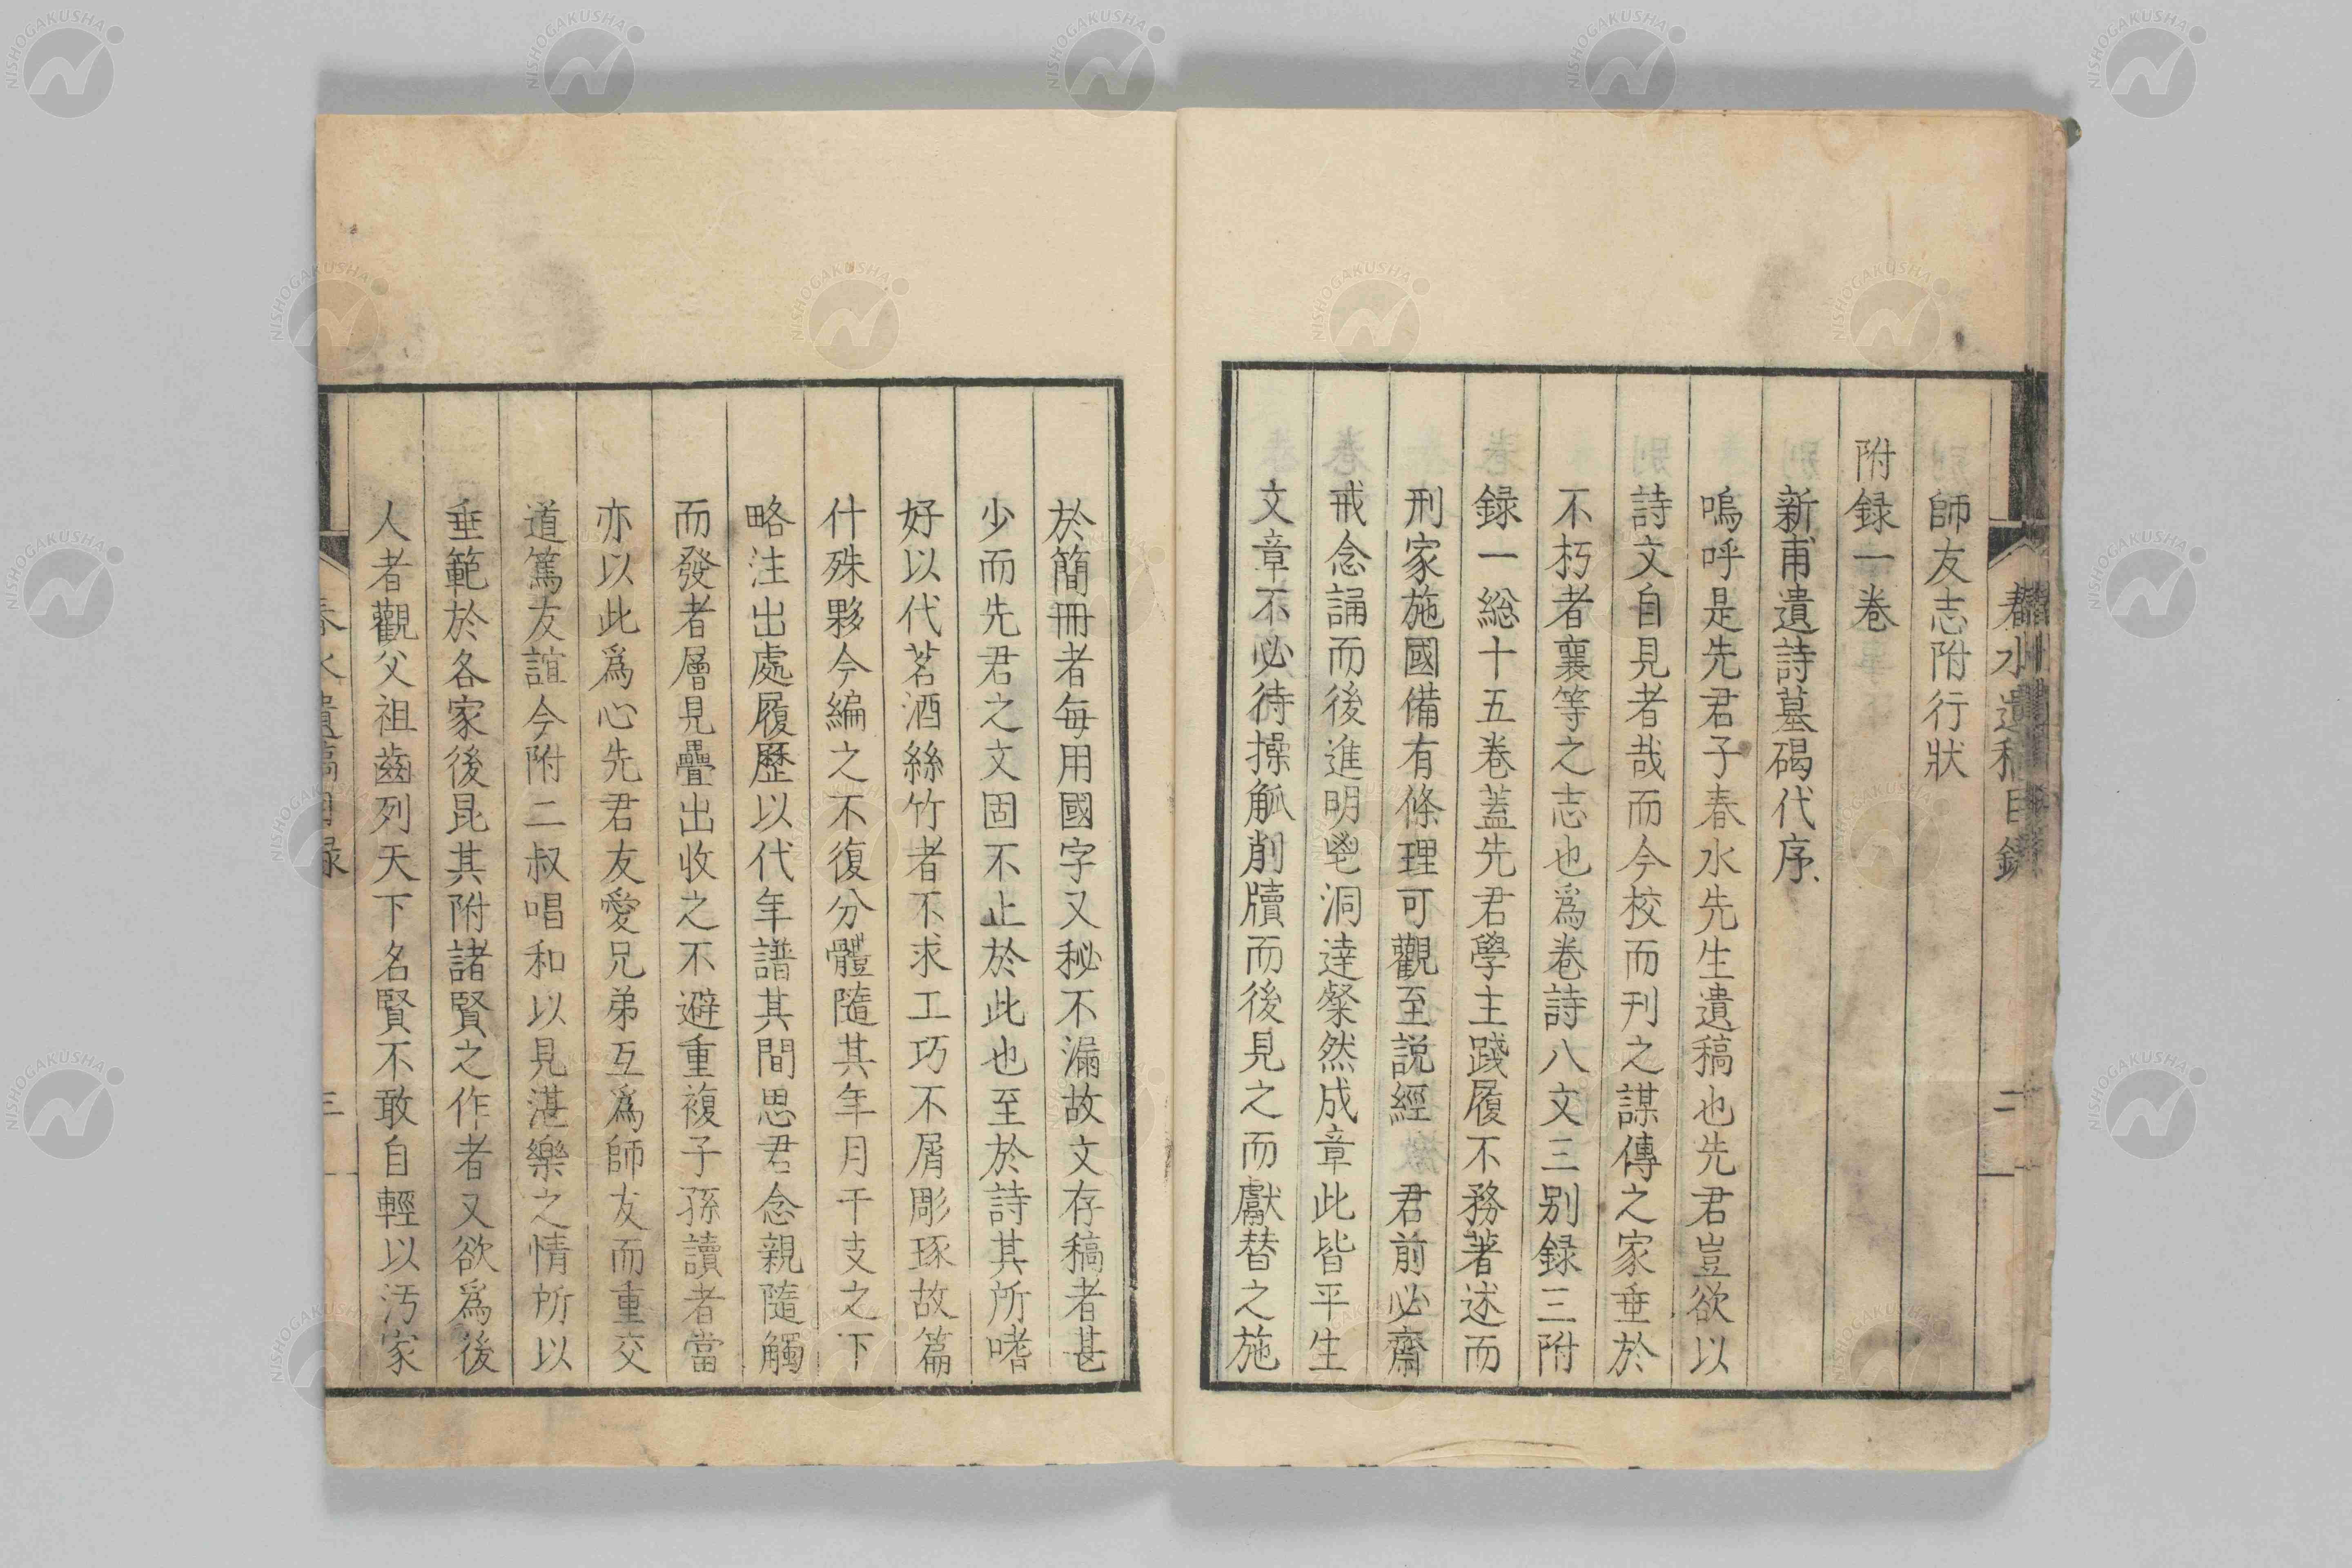 春水遺稿目録 二
師友志附行狀
附録一巻
新甫遺詩墓碣代序
嗚呼是先君子春水先生遺稿也先君豈欲以
詩文自見者哉而今校而刊之謀傳之家垂於
不朽者襄等之志也爲巻詩八文三別録三附
録一総十五巻蓋先君學主踐履不務著述而
刑家施國備有條理可觀至説經 君前必齋
戒念誦而後進明鬯洞達粲然成章此皆平生
文章不必待操觚削牘而後見之而獻替之施
於簡冊者毎用國字又秘不漏故文存稿者甚
少而先君之文固不止於此也至於詩其所嗜
好以代茗酒絲竹者不求工巧不屑彫琢故篇
什殊夥今編之不復分體隨其年月干支之下
略注出處履歷以代年譜其間思君念親隨觸
而發者層見疊出收之不避重複子孫讀者當
亦以此爲心先君友愛兄弟互爲師友而重交
道篤友誼今附二叔唱和以見湛樂之情所以
垂範於各家後昆其附諸賢之作者又欲爲後
人者觀父祖齒列天下名賢不敢自輕以汚家
春水遺稿目録 三
NISHOGAKUSHA